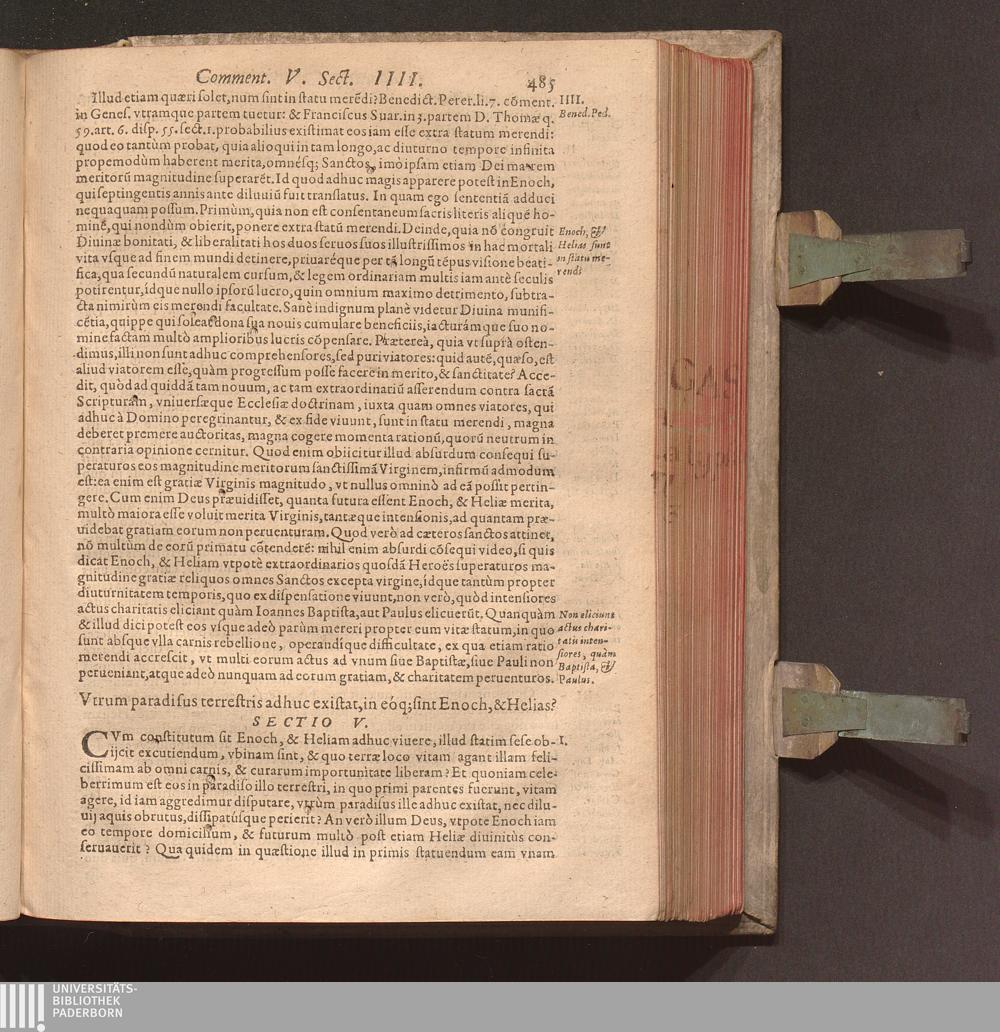 Comment. V. Sect. IIII. 485
Illud etiam quæri solet, num sint in statu merẽdi? Benedict. Perer. li. 7. cõment. IIII.
in Genes. vtramque partem tuetur: & Franciscus Suar. in 3. partem D. Thomæ q. Bened. Ped.
59. art. 6. disp. 55. sect. 1. probabilius existimat eos iam esse extra statum merendi:
quod eo tantùm probat, quia alioqui in tam longo, ac diuturno tempore infinita
propemodùm haberent merita, omnésq; Sanctos, imò ipsam etiam Dei matrem
meritorũ magnitudine superarẽt. Id quod adhuc magis apparere potest in Enoch,
qui septingentis annis ante diluuiũ fuit translatus. In quam ego sententiã adduci
nequaquam possum. Primùm, quia non est consentaneum sacris literis aliquẽ ho-
minẽ, qui nondùm obierit, ponere extra statũ merendi. Deinde, quia nõ congruit Enoch, &
Diuinæ bonitati, & liberalitati hos duos seruos suos illustrissimos in hac mortali Helias sunt
vita vsque ad finem mundi detinere, priuaréque per tã longũ tẽpus visione beati- in statu me-
fica, qua secundũ naturalem cursum, & legem ordinariam multis iam antè seculis rendi
potirentur, idque nullo ipsorũ lucro, quin omnium maximo detrimento, subtra-
cta nimirùm eis merendi facultate. Sanè indignum planè videtur Diuina munifi-
cẽtia, quippe qui soleat dona sua nouis cumulare beneficiis, iacturámque suo no-
mine factam multò amplioribus lucris cõpensare. Præterea, quia vt suprà osten-
dimus, illi non sunt adhuc comprehensores, sed puri viatores: quid autẽ, quæso, est
aliud viatorem esse, quàm progressum posse facere in merito, & sanctitate? Acce-
dit, quòd ad quiddã tam nouum, ac tam extraordinariũ asserendum contra sacrã
Scripturam, vniuersæque Ecclesiæ doctrinam, iuxta quam omnes viatores, qui
adhuc à Domino peregrinantur, & ex fide viuunt, sunt in statu merendi, magna
deberet premere auctoritas, magna cogere momenta rationũ, quorũ neutrum in
contraria opinione cernitur. Quod enim obiicitur illud absurdum consequi su-
peraturos eos magnitudine meritorum sanctissimã Virginem, infirmũ admodum
est: ea enim est gratiæ Virginis magnitudo, vt nullus omninò ad eã possit pertin-
gere. Cum enim Deus præuidisset, quanta futura essent Enoch, & Heliæ merita,
multò maiora esse voluit merita Virginis, tantæque intensionis, ad quantam præ-
uidebat gratiam eorum non peruenturam. Quod verò ad cæteros sanctos attinet,
nõ multùm de eorũ primatu cõtenderẽ: nihil enim absurdi cõsequi video, si quis
dicat Enoch, & Heliam vtpotè extraordinarios quosdã Heroës superaturos ma-
gnitudine gratiæ reliquos omnes Sanctos excepta virgine, idque tantùm propter
diuturnitatem temporis, quo ex dispensatione viuunt, non verò, quòd intensiores
actus charitatis eliciant quàm Ioannes Baptista, aut Paulus elicuerũt. Quanquàm Non eliciunt
& illud dici potest eos vsque adeò parùm mereri propter eum vitæ statum, in quo actus chari-
sunt absque vlla carnis rebellione, operandíque difficultate, ex qua etiam ratio tatis inten-
merendi accrescit, vt multi eorum actus ad vnum siue Baptistæ, siue Pauli non siores, quàm
perueniant, atque adeò nunquam ad eorum gratiam, & charitatem peruenturos. Baptista, &
Paulus.
Vtrum paradisus terrestris adhuc existat, in eóq; sint Enoch, & Helias?
SECTIO V.
CVm constitutum sit Enoch, & Heliam adhuc viuere, illud statim sese ob- I.
ijcit excutiendum, vbinam sint, & quo terræ loco vitam agant illam feli-
cissimam ab omni carnis, & curarum importunitate liberam? Et quoniam cele-
berrimum est eos in paradiso illo terrestri, in quo primi parentes fuerunt, vitam
agere, id iam aggredimur disputare, vtrùm paradisus ille adhuc existat, nec dilu-
uij aquis obrutus, dissipatúsque perierit? An verò illum Deus, vtpote Enoch iam
eo tempore domicilium, & futurum multò post etiam Heliæ diuinitùs con-
seruauerit? Qua quidem in quæstione illud in primis statuendum eam vnam
UNIVERSITÄTS-
BIBLIOTHEK
PADERBORN